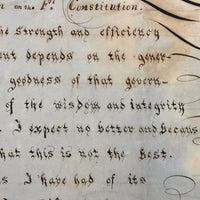 on the Fl. Constitution.
he strength and efficiency
ent depends on the gener-
goodness of that govern-
of the wisdom and integrity
I expect no better and becaus
hat this is not the best.
s I have had of its